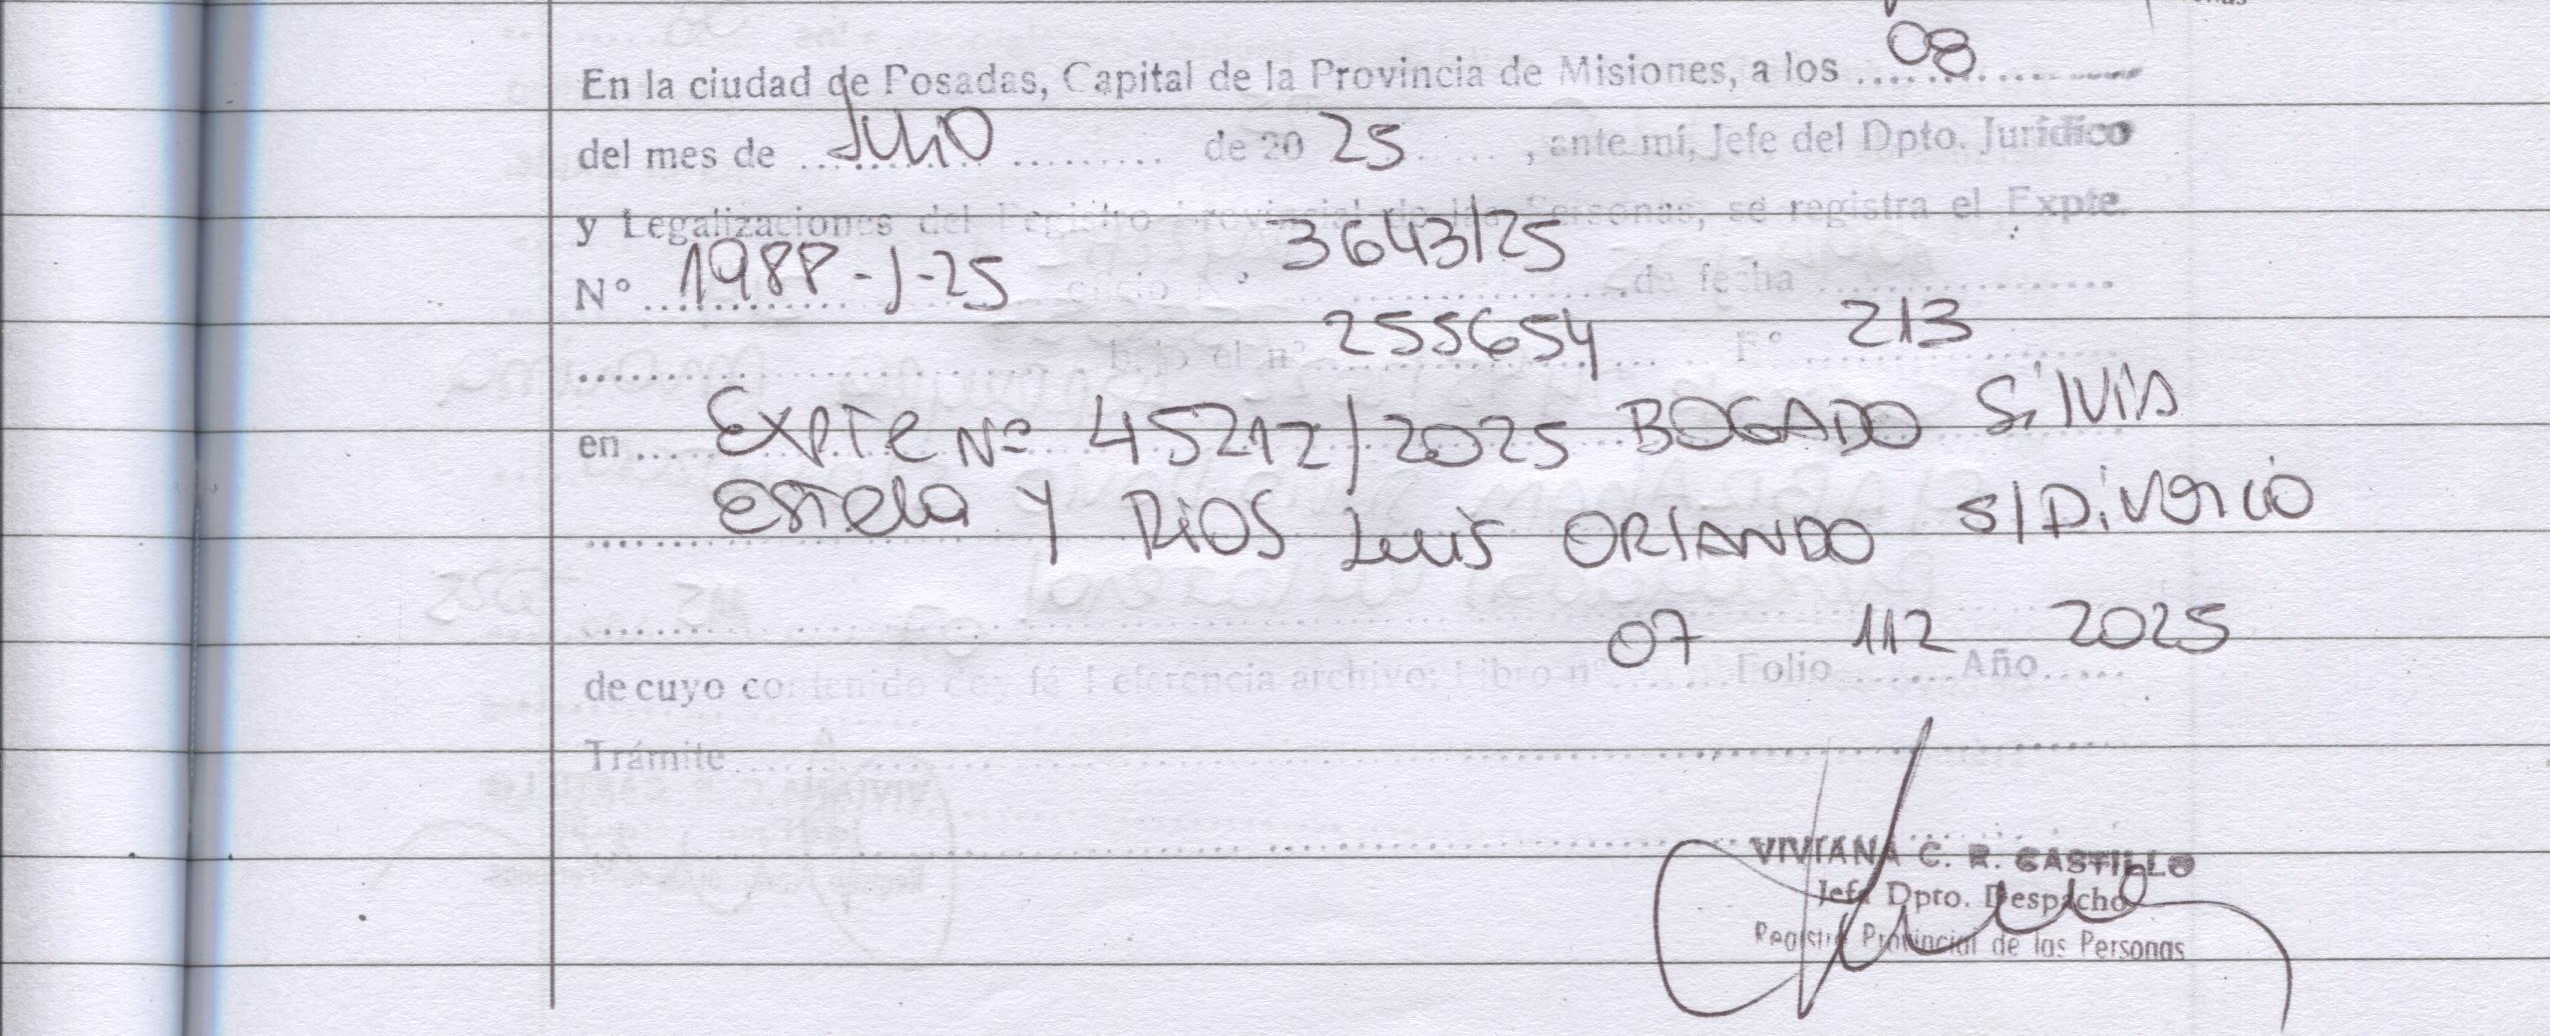 En la ciudad de Posadas, Capital de la Provincia de Misiones, a los 08
del mes de Julio de 20 25, ante mí, Jefe del Dpto. Jurídico
y Legalizaciones del Registro Provincial de las Personas, se registra el Expte.
N° 1988-J-25 oficio N° 3643/25 de fecha
bajo el n° 255654 F° 213
en EXPTE Nº 45212/2025 BOGADO SilviA
Estela Y RiOS Luis ORLANDO s/Divorcio
de cuyo contenido doy fé. Referencia archivo: Libro n° 07 Folio 112 Año 2025
Trámite
VIVIANA C. R. CASTILLO
Jefa Dpto. Despacho
Registro Provincial de las Personas